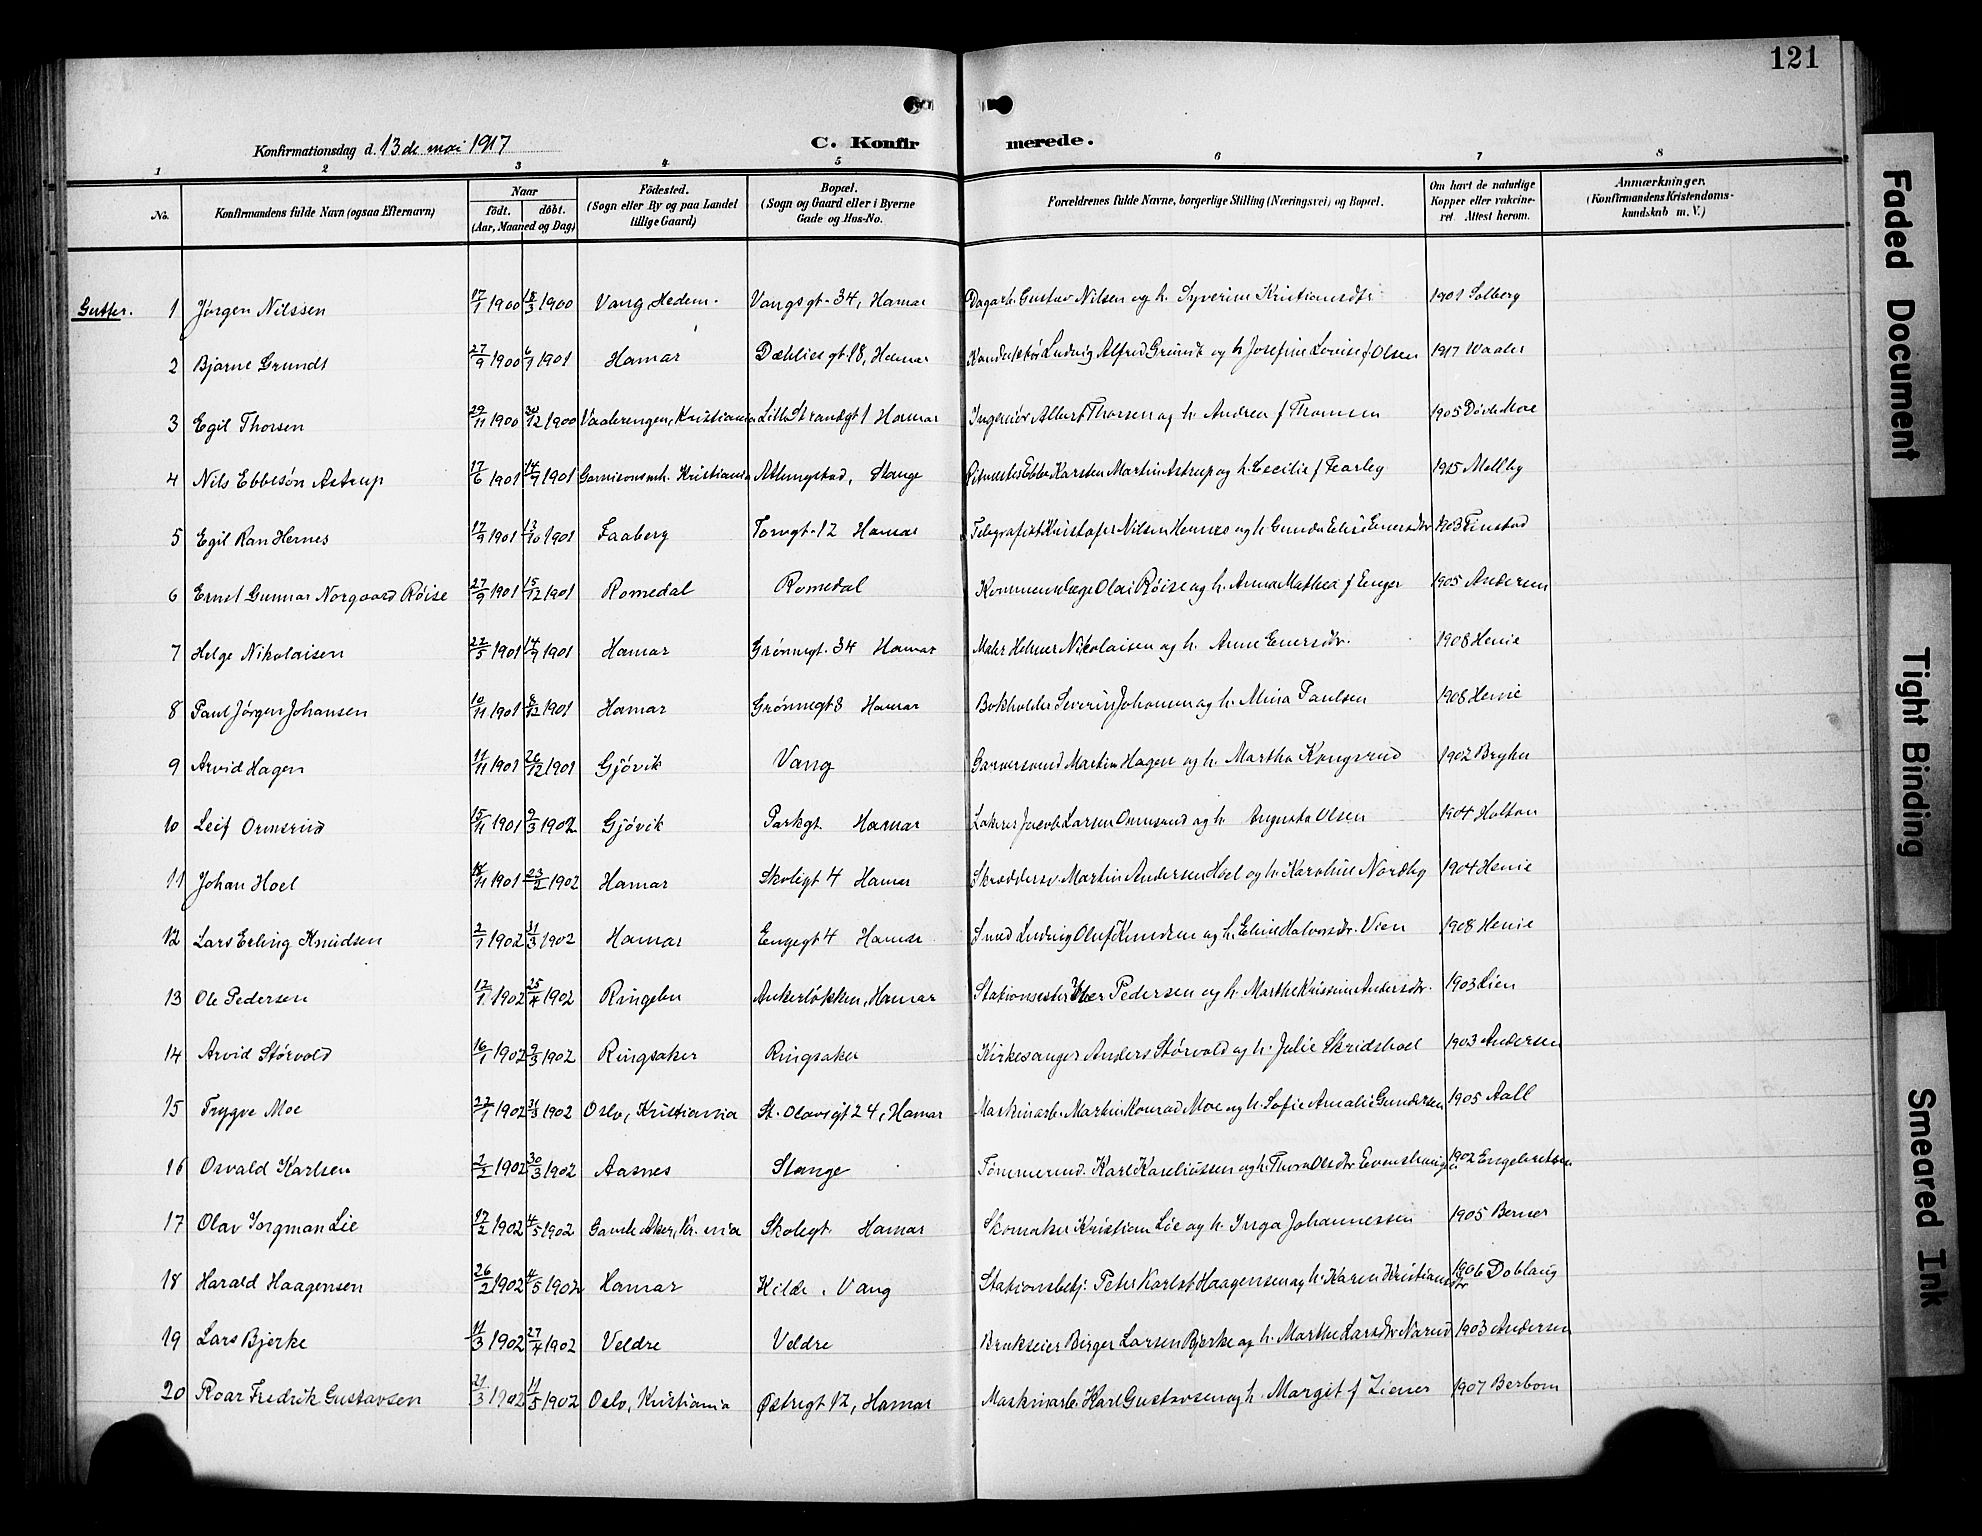 121
Konfirmationsdag d. 13de mai 1917
C. Konfirmerede.
1 2 3 4 5 6 7 8
No. Konfirmandens fulde Navn (ogsaa Efternavn) Naar født. døbt. (Aar, Maaned og Dag) Fødested. (Sogn eller By og paa Landet tillige Gaard) Bopæl. (Sogn og Gaard eller i Byerne Gade og Hus-No. Forældrenes fulde Navne, borgerlige Stilling (Næringsvei) og Bopæl. Om havt de naturlige Kopper eller vakcineret. Attest herom. Anmærkninger. (Konfirmandens Kristendomskundskab m. V.)
Gutter. 1 Jørgen Nilssen 17/1 1900 18/3 1900 Vang, Hedem. Vangsgt. 34, Hamar Dagarb. Gustav Nilsen og h. Syverine Kristiansdtr 1901 Solberg
2 Bjarne Grundt 27/9 1900 6/9 1901 Hamar Dæhliesgt 18, Hamar Konduktør Ludvig Alfred Grundt og h Josefine Lovise f Olsen 1917 Waaler
3 Egil Thorsen 29/11 1900 30/12 1900 Vaalerengen, Kristiania Lille Strandgt 1 Hamar Ingeniør Albert Thorsen og h. Andrea f Thomsen 1905 Døvle Moe
4 Nils Ebbesøn Astrup 17/6 1901 14/9 1901 Garnisonsmh. Kristiania Atlungstad, Stange Ritmester Ebbe Karsten Martin Astrup og h. Cecilie f Fearley 1915 Mellby
5 Egil Ran Hernes 17/9 1901 13/10 1901 Faaberg Torvgt. 12 Hamar Telegrafist Kristofer Nilsen Hernes og h Gunda Elise Enersdtr 1903 Finstad
6 Ernst Gunnar Norgaard Røise 27/9 1901 15/12 1901 Romedal Romedal Kommunelæge Olai Røise og h. Anna Mathea f Enger 1905 Andersen
7 Helge Nikolaisen 22/5 1901 14/9 1901 Hamar Grønnegt. 34 Hamar Maler Helmer Nikolaisen og h. Anne Enersdtr. 1908 Henie
8 Paul Jørgen Johansen 10/11 1901 8/12 1901 Hamar Grønnegt 8 Hamar Bokholder Severin Johansen og h. Mina Paulsen 1908 Henie
9 Arvid Hagen 11/11 1901 26/12 1901 Gjøvik Vang Garversvend Martin Hagen og h. Martha Kongsrud 1902 Bryhn
10 Leif Ormsrud 15/11 1901 9/3 1902 Gjøvik Parkgt. Hamar Jacob Larsen Ormsrud og h. Augusta Olsen 1904 Holtan
11 Johan Hoel 18/11 1901 23/2 1902 Hamar Skolegt 4 Hamar Skræddersv. Martin Andersen Hoel og h. Karoline Nordby 1904 Henie
12 Lars Erling Knudsen 2/1 1902 31/3 1902 Hamar Engegt 4 Hamar Smed Ludvig Oluf Knudsen og h. Eline Halvorsdtr. Vien 1908 Henie
13 Ole Pedersen 12/1 1902 25/4 1902 Ringebu Ankerløkken, Hamar Pedersen og h. Marthe Kristine Andersdtr. 1903 Lien
14 Arvid Størvold 16/1 1902 9/3 1902 Ringsaker Ringsaker Kirkesanger Anders Størvold og h. Julie Skridshoel 1903 Andersen
15 Trygve Moe 22/1 1902 31/3 1902 Oslo, Kristiania St. Olavsgt 24, Hamar Maskinarb. Martin Konrad Moe og h. Sofie Amalie Gundersen 1905 Aall
16 Osvald Karlsen 2/2 1902 30/3 1902 Aasnes Stange Tømmermd. Karl Kareliussen og h. Thora Olsdtr Evenshaug 1902 Engebretsen
17 Olav Jorgman Lie 17/2 1902 4/5 1902 Gamle Aker, Kr.ania Skolegt. Hamar Skomaker Kristian Lie og h. Inga Johannessen 1905 Berner
18 Harald Haagensen 26/2 1902 4/5 1902 Hamar Kilde, Vang Stationsbetj. Peter Karlot Haagensen og h. Karen Kristiansdtr 1906 Doblaug
19 Lars Bjerke 11/3 1902 27/4 1902 Veldre Veldre Brukseier Birger Larsen Bjerke og h. Marthe Larsdtr Narud 1903 Andersen
20 Roar Fredrik Gustavsen 21/3 1902 11/5 1902 Oslo, Kristiania Østregt 12, Hamar Maskinarb. Karl Gustavsen og h. Margit f Ziener 1907 Berbom
Faded Document
Tight Binding
Smeared Ink